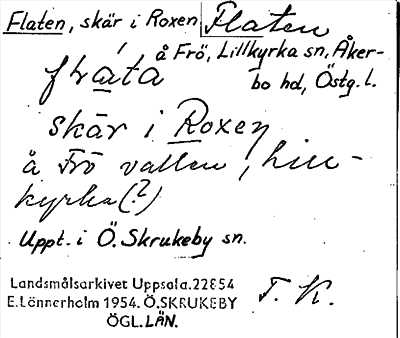 Flaten, skär i Roxen Flaten
å Frö, Lillkyrka sn, Åker-
bo hd, Östg. l.
fráta
skär i Roxen
å Frö vatten, Lill-
kyrka (?)
Uppt. i Ö. Skrukeby sn.
Landsmålsarkivet Uppsala. 22854
E. Lönnerholm 1954. Ö. SKRUKEBY
ÖGL. LÄN.
T. K.